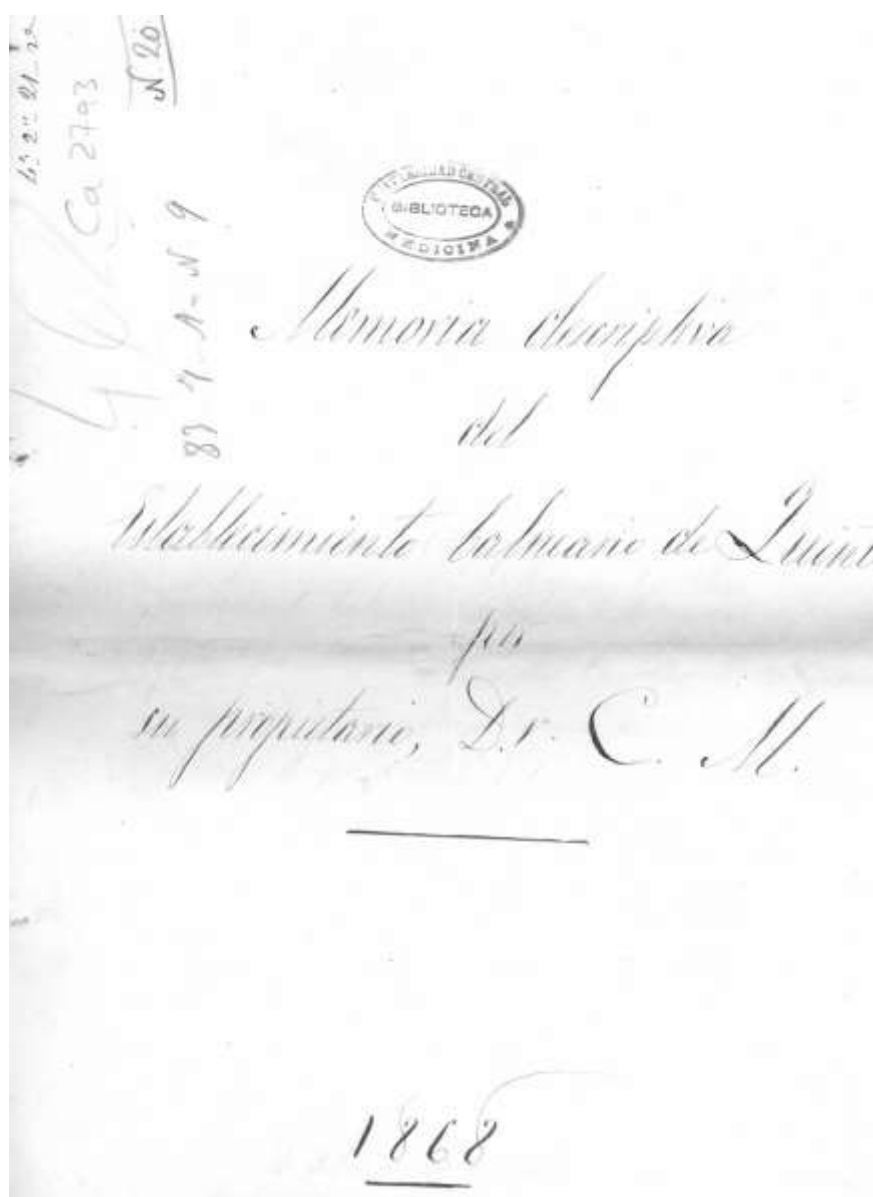 Nº 20
Ca 2793
UNIVERSIDAD CENTRAL
BIBLIOTECA
MEDICINA
Memoria descriptiva
del
Establecimiento balneario de
por
su propietario, D.r C. M.
1868